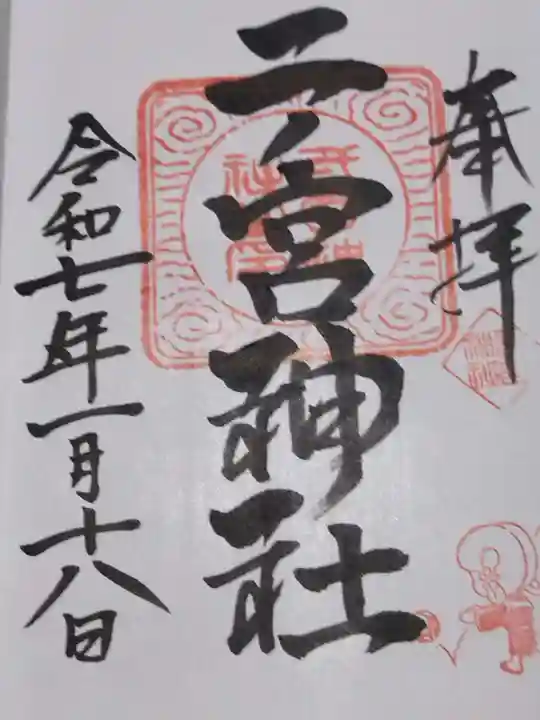 奉拝
二ノ宮神社
令和七年一月十八日